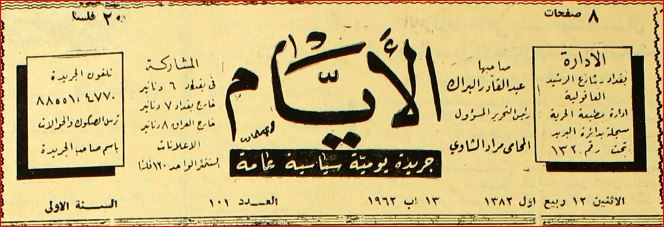 ٨ صفحات
٢٠ فلسا
الادارة
بغداد شارع الرشيد
العاقولية
ادارة مطبعة الحرية
مسجلة بدائرة البريد
تحت رقم ١٣٢
صاحبها
عبدالقادر البراك
رئيس التحرير المسؤول
المحامي مراد الشاوي
الأيام
جريدة يومية سياسية عامة
المشاركة
في بغداد ٦ دنانير
خارج بغداد ٧ دنانير
خارج العراق ٨ دنانير
الاعلانات
السنتمتر الواحد ١٢٠ فلسا
تلفون الجريدة
٨٨٥٥٦١٠٤٧٧٠
ترسل الصكوك والحوالات
باسم صاحب الجريدة
الاثنين ١٢ ربيع اول ١٣٨٢
١٣ اب ١٩٦٢
العدد ١٠١
السنة الاولى